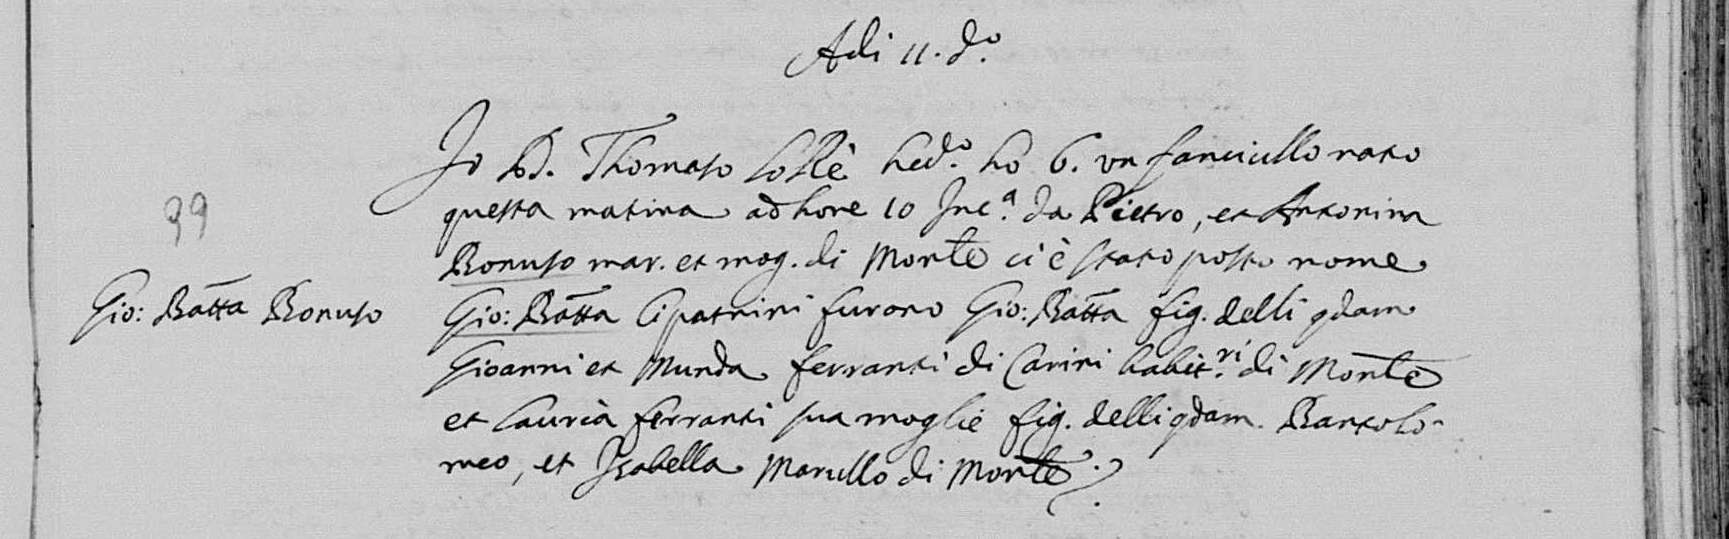 Adi 11. dº.
Io D. Thomaso lo Rè hedº. ho b. un fanciullo nato
questa matina ad hore 10 Inc.ª da Pietro, et Antonina
99
Bonuso mar. et mog. di Monte ci è stato posto nome
Gio: Batta Bonuso
Gio: Batta li patrini furono Gio: Batta fig. delli qdam
Gioanni et Munda ferranti di Carini habit.ri di Monte
et Lauria ferranti sua moglie fig. delli qdam. Bartolo-
meo, et Isabella Marullo di Monte.